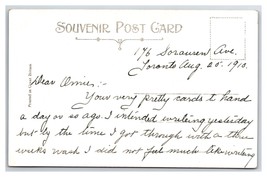 SOUVENIR POST CARD
176 Sorauren Ave,
Toronto Aug. 20" 1910.
Dear Annie:-
Your very pretty cards to hand
a day or so ago. I intended writing yesterday
but by the time I got through with a three
weeks wash I did not feel much like writing